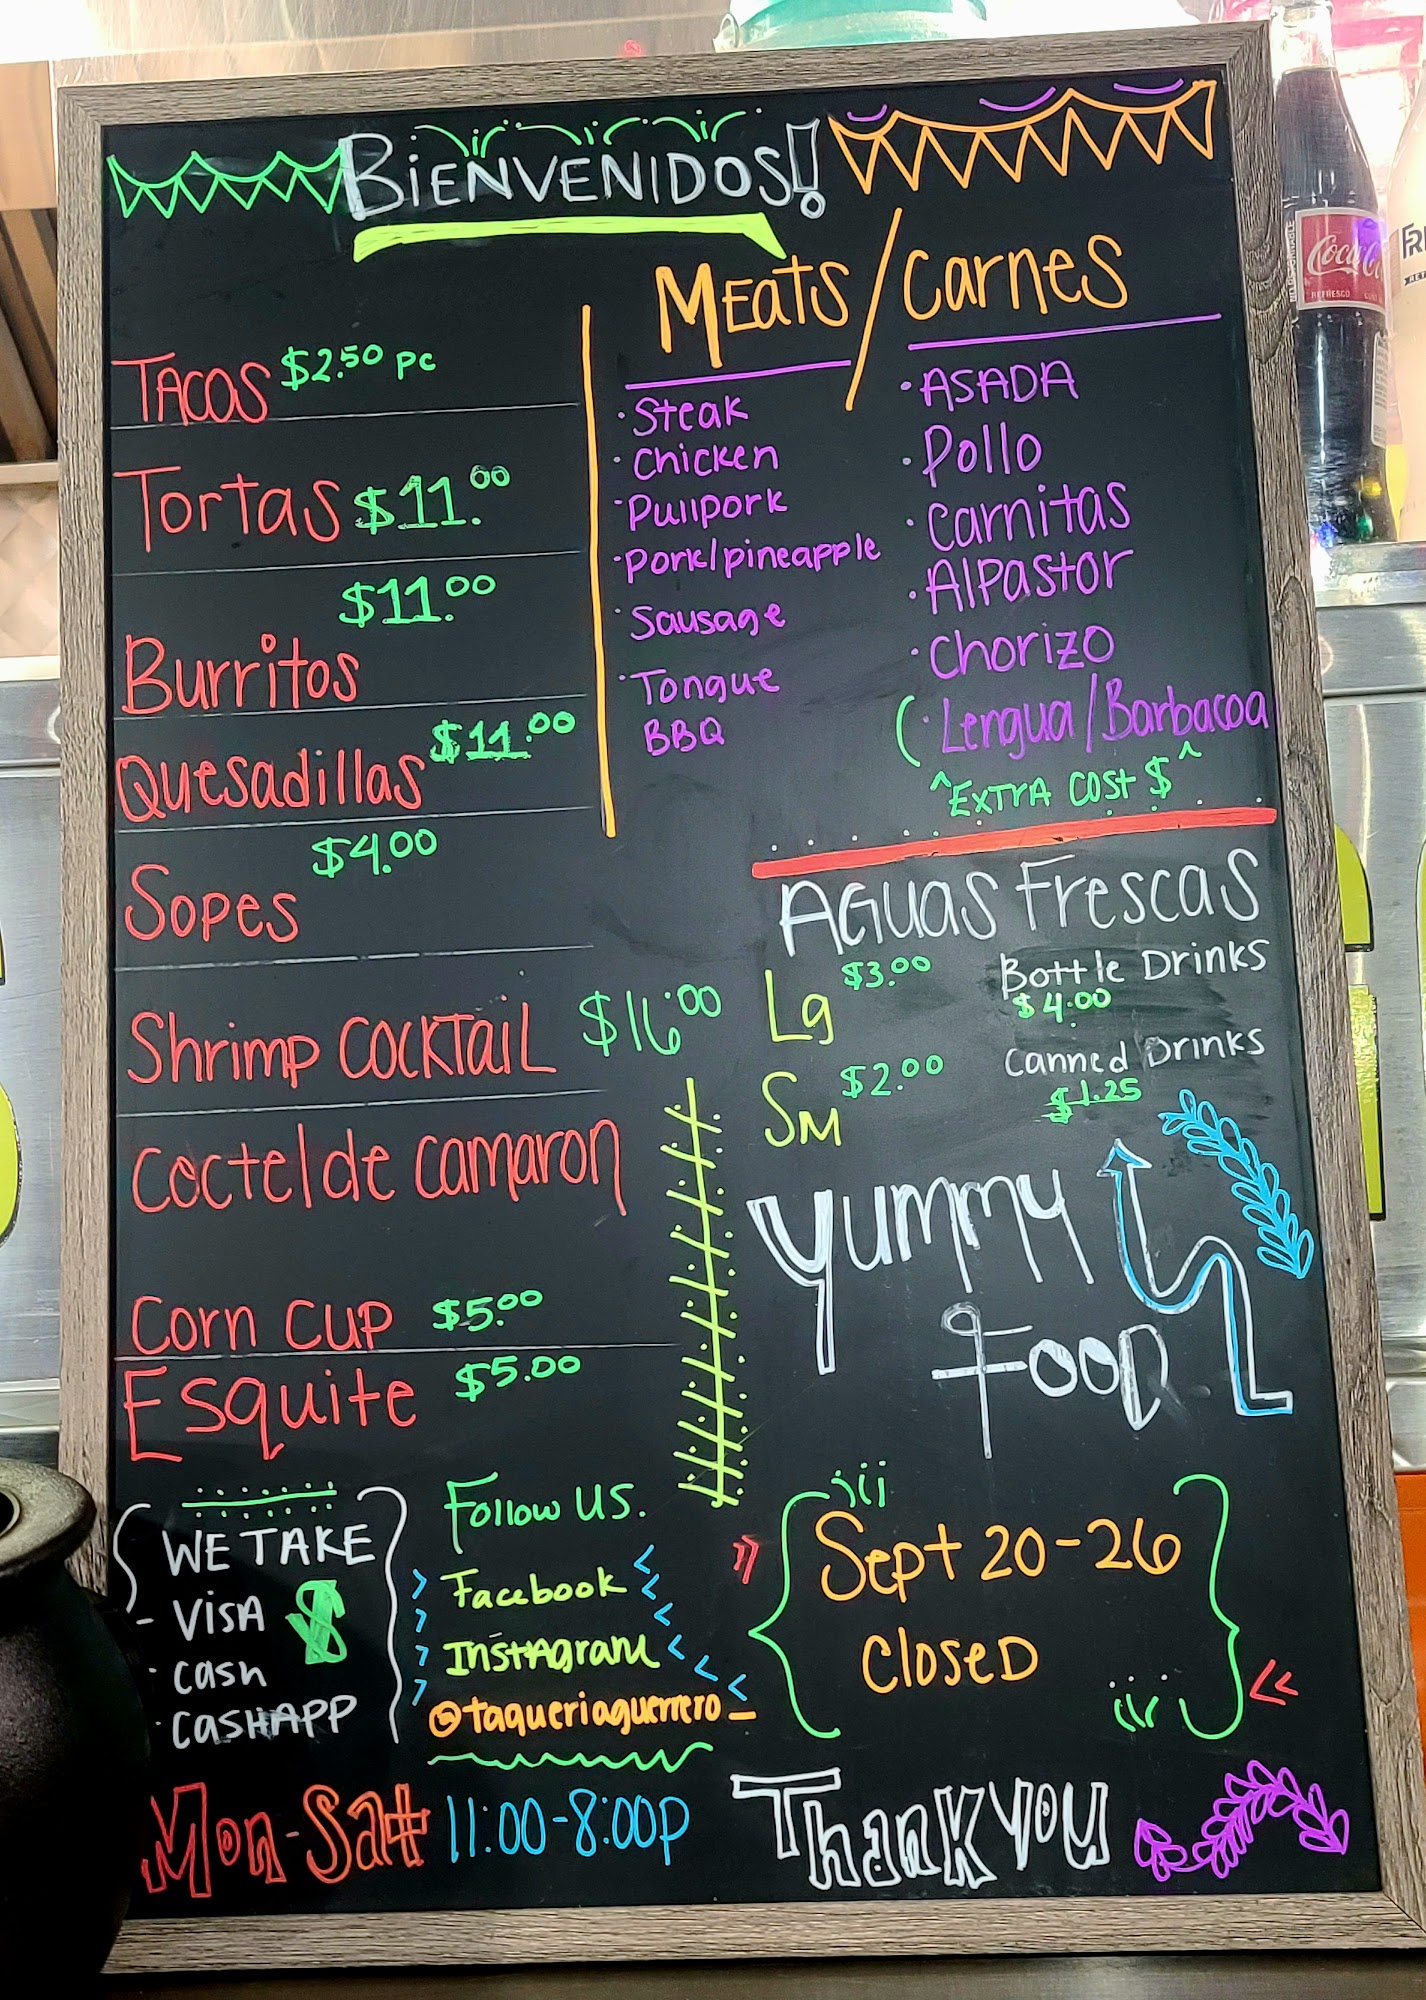 BIENVENIDOS!
TACOS $2.50 PC
Tortas $11.00
$11.00
Burritos
Quesadillas $11.00
$4.00
Sopes
Shrimp COCKTAIL $16.00
Coctel de camaron
Corn CUP $5.00
Esquite $5.00
MEats/Carnes
· Steak
· Chicken
· Pullpork
· Pork/pineapple
· Sausage
· Tongue
BBQ
· ASADA
· Pollo
· Carnitas
· AlPastor
· Chorizo
(· Lengua/Barbacoa
^EXTrA COST $^
AGUAS Frescas
Lg $3.00
SM $2.00
Bottle Drinks
$4.00
Canned Drinks
$1.25
Yummy
FOOD
WE TAKE
- VISA $
· Cash
· CASHAPP
Follow US.
Facebook
Instagram
@taqueriaguerrero_
Sept 20-26
Closed
Mon-Sat 11:00-8:00P
Thank you
Coca-Co
REFRESCO